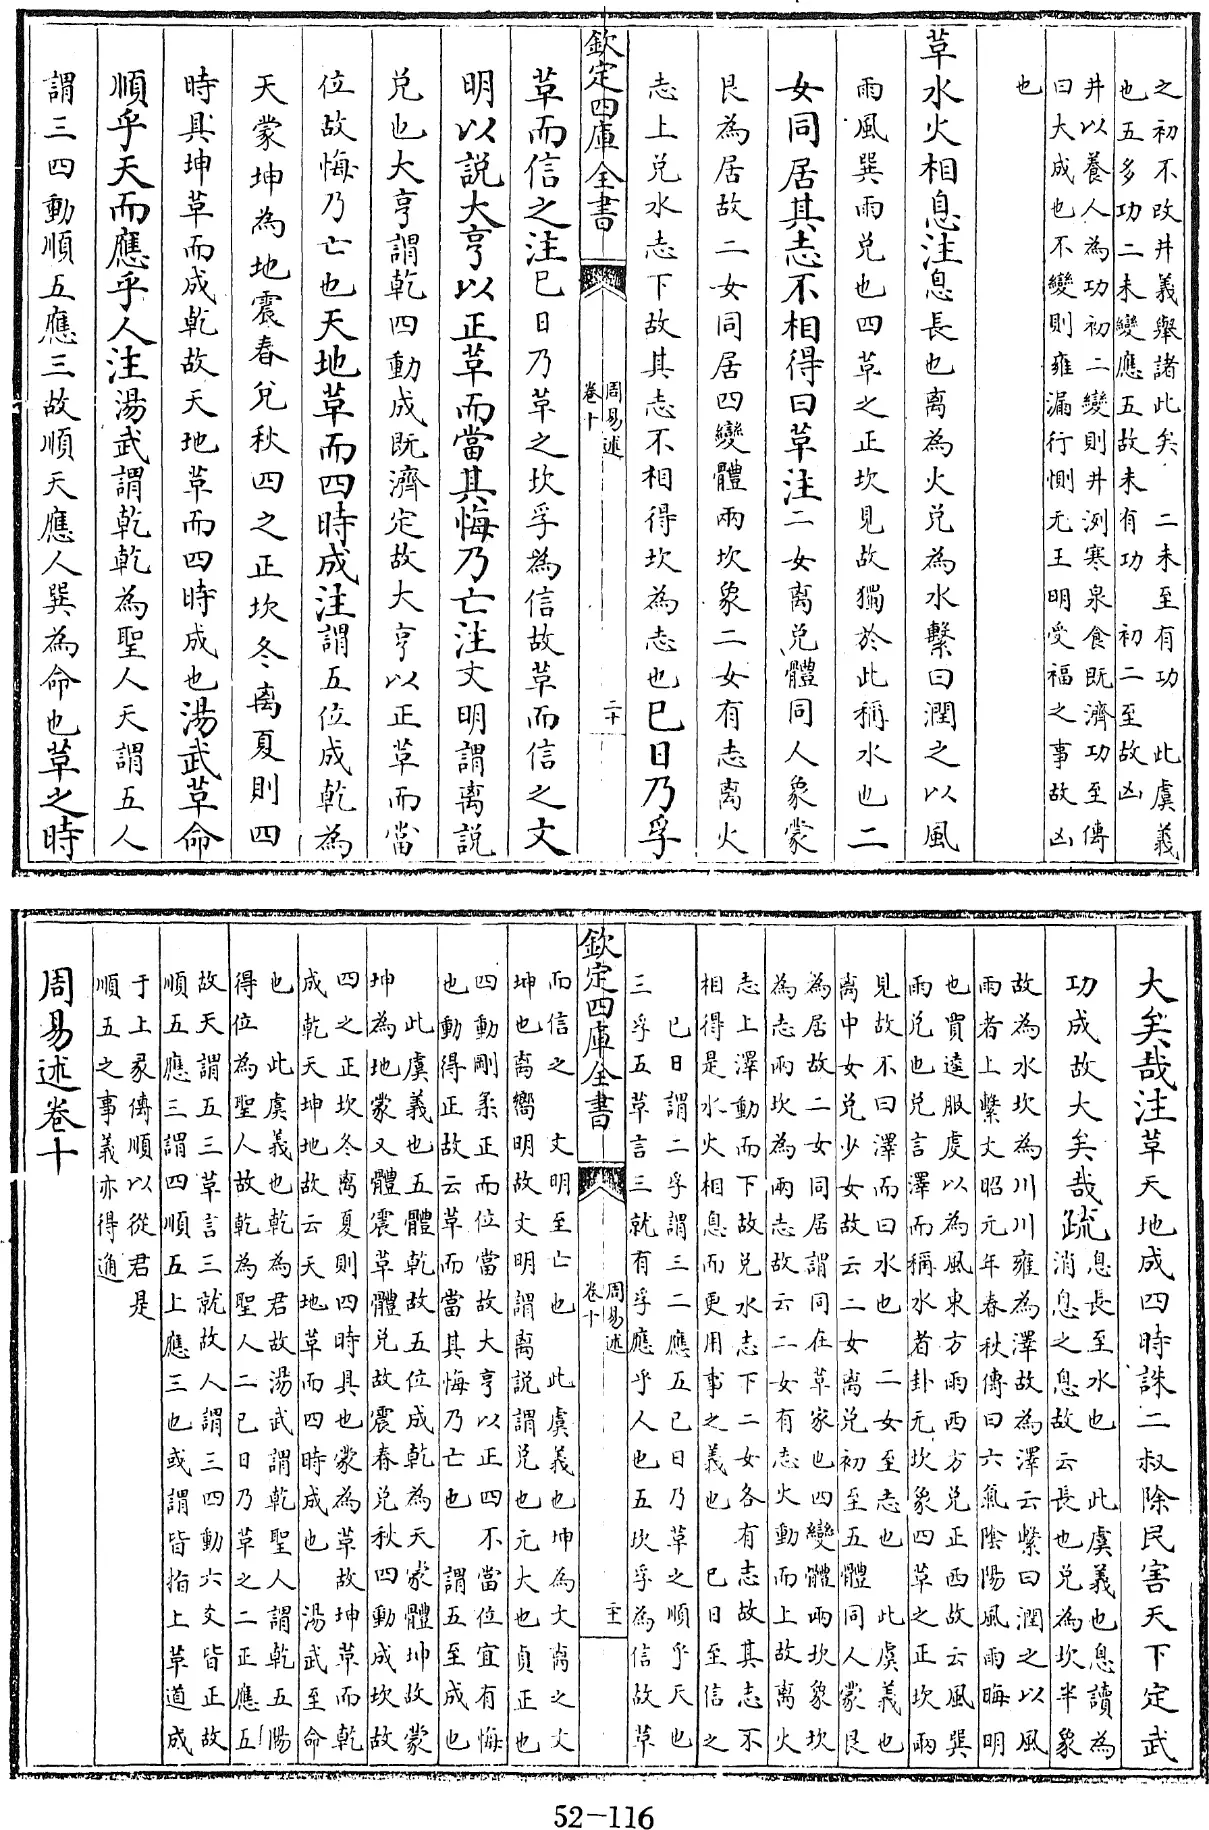 之初不改井義舉諸此矣　二未至有功　此虞義
也五多功二未變應五故未有功　初二至故凶
井以養人為功初二變則井洌寒泉食既濟功至傳
曰大成也不變則雍漏行惻无王明受福之事故凶
也
革水火相息注息長也离為火兌為水繫曰潤之以風
雨風巽雨兌也四革之正坎見故獨於此稱水也二
女同居其志不相得曰革注二女离兌體同人象蒙
艮為居故二女同居四變體兩坎象二女有志离火
志上兌水志下故其志不相得坎為志也巳日乃孚
欽定四庫全書
周易述
卷十
二十
革而信之注巳日乃革之坎孚為信故革而信之文
明以說大亨以正革而當其悔乃亡注文明謂离說
兌也大亨謂乾四動成既濟定故大亨以正革而當
位故悔乃亡也天地革而四時成注謂五位成乾為
天蒙坤為地震春兌秋四之正坎冬离夏則四
時具坤革而成乾故天地革而四時成也湯武革命
順乎天而應乎人注湯武謂乾乾為聖人天謂五人
謂三四動順五應三故順天應人巽為命也革之時
大矣哉注革天地成四時誅二叔除民害天下定武
功成故大矣哉疏
息長至水也　此虞義也息讀為
消息之息故云長也兌為坎半象
故為水坎為川川雍為澤故為澤云繫曰潤之以風
雨者上繫文昭元年春秋傳曰六氣陰陽風雨晦明
也賈逵服虔以為風東方雨西方兌正西故云風巽
雨兌也兌言澤而稱水者卦无坎象四革之正坎兩
見故不曰澤而曰水也　二女至志也　此虞義也
离中女兌少女故云二女离兌初至五體同人蒙艮
為居故二女同居謂同在革家也四變體兩坎象坎
為志兩坎為兩志故云二女有志火動而上故离火
志上澤動而下故兌水志下二女各有志故其志不
相得是水火相息而更用事之義也　巳日至信之
巳日謂二孚謂三二應五巳日乃革之順乎天也
三孚五革言三就有孚應乎人也五坎孚為信故革
欽定四庫全書
周易述
卷十
二十一
而信之　文明至亡也　此虞義也坤為文离之文
坤也离嚮明故文明謂离說謂兌也元大也貞正也
四動剛柔正而位當故大亨以正四不當位宜有悔
也動得正故云革而當其悔乃亡也　謂五至成也
此虞義也五體乾故五位成乾為天蒙體坤故蒙
坤為地蒙又體震革體兌故震春兌秋四動成坎故
四之正坎冬离夏則四時具也蒙為革故坤革而乾
成乾天坤地故云天地革而四時成也　湯武至命
也　此虞義也乾為君故湯武謂乾聖人謂乾五陽
得位為聖人故乾為聖人二巳日乃革之二正應五
故天謂五三革言三就故人謂三四動六爻皆正故
順五應三謂四順五上應三也或謂皆指上革道成
于上彖傳順以從君是
順五之事義亦得通
周易述卷十
52-116